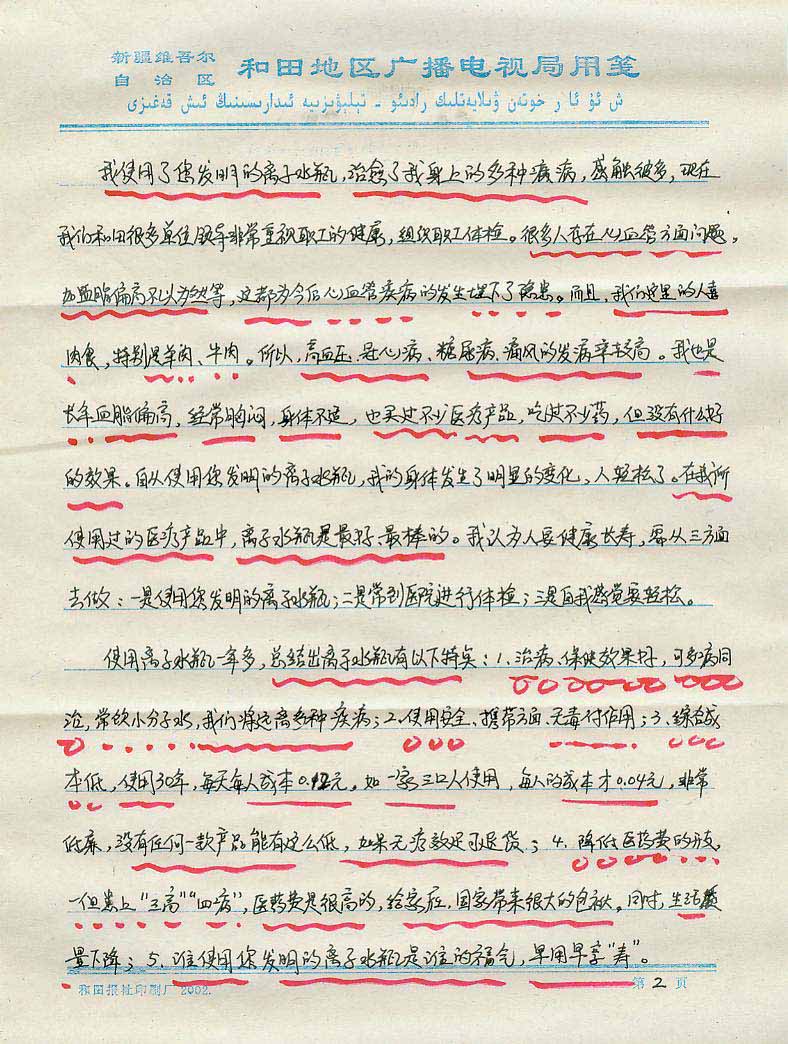 新疆维吾尔
自治区
和田地区广播电视局用笺
ش ئۇ ئا ر خوتەن ۋىلايەتلىك رادىئو - تېلېۋىزىيە ئىدارىسىنىڭ ئىش قەغىزى
我使用了您发明的离子水瓶，治愈了我身上的多种疾病，感触很多，现在
我们和田很多单位领导非常重视职工的健康，组织职工体检。很多人存在心血管方面问题，
如血脂偏高不以为然等，这都为今后心血管疾病的发生埋下了隐患。而且，我们这里的人喜
肉食，特别是羊肉、牛肉。所以，高血压、冠心病、糖尿病、痛风的发病率较高。我也是
长年血脂偏高，经常胸闷，身体不适，也买过不少医疗产品，吃过不少药，但没有什么好
的效果。自从使用您发明的离子水瓶，我的身体发生了明显的变化，人轻松了。在我所
使用过的医疗产品中，离子水瓶是最好、最棒的。我认为人要健康长寿，需从三方面
去做：一是使用您发明的离子水瓶；二是常到医院进行体检；三是自我感觉要轻松。
使用离子水瓶一年多，总结出离子水瓶有以下特点：1、治病、保健效果好，可多病同
治，常饮小分子水，我们将远离多种疾病；2、使用安全、携带方面、无毒付作用；3、综合成
本低，使用30年，每天每人成本0.12元。如一家三口人使用，每人的成本才0.04元，非常
低廉，没有任何一款产品能有这么低，如果无疗效还可退货；4、降低医药费的开支，
一但患上“三高”“四病”，医药费是很高的，给家庭、国家带来很大的包袱。同时，生活质
量下降；5、谁使用您发明的离子水瓶是谁的福气，早用早享“寿”。
和田报社印刷厂 2002.
第 2 页